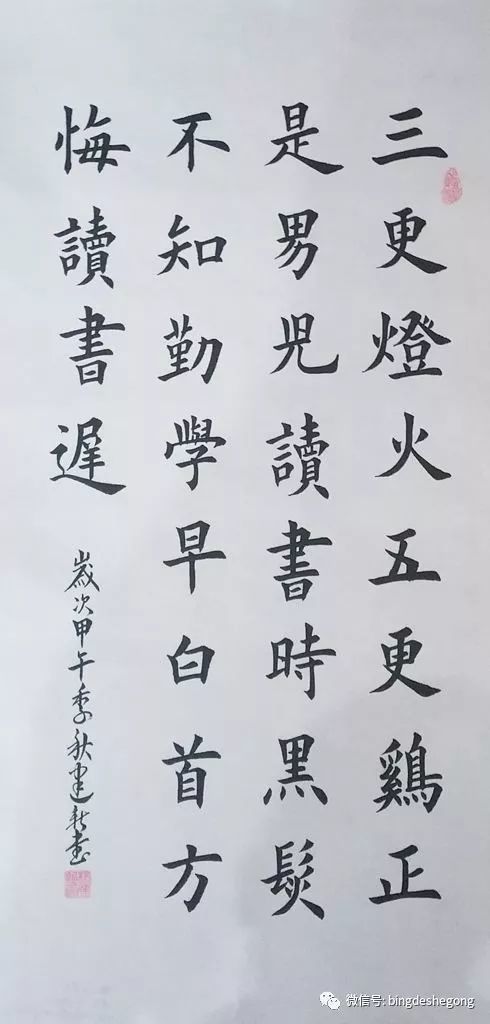 三更燈火五更鷄正
是男兒讀書時黑髮
不知勤學早白首方
悔讀書遲
歲次甲午季秋建新書
微信号: bingdeshegong